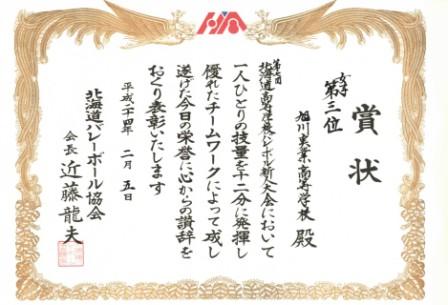 賞状
女子
第三位
旭川実業高等学校 殿
北海道高等学校バレーボール新人大会において
一人ひとりの技量を十二分に発揮し
優れたチームワークによって成し
遂げた今日の栄誉に心からの讃辞を
おくり表彰いたします
平成二十四年 二月 五日
北海道バレーボール協会
会長 近藤龍夫